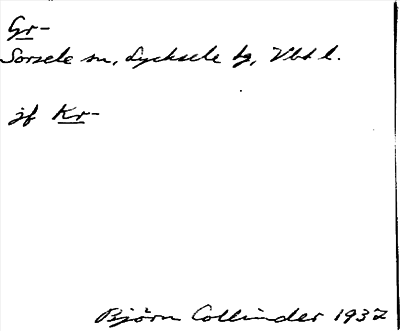 Gr-
Sorsele sn, Lycksele tg, Vbt l.
jf Kr-
Björn Collinder 1932